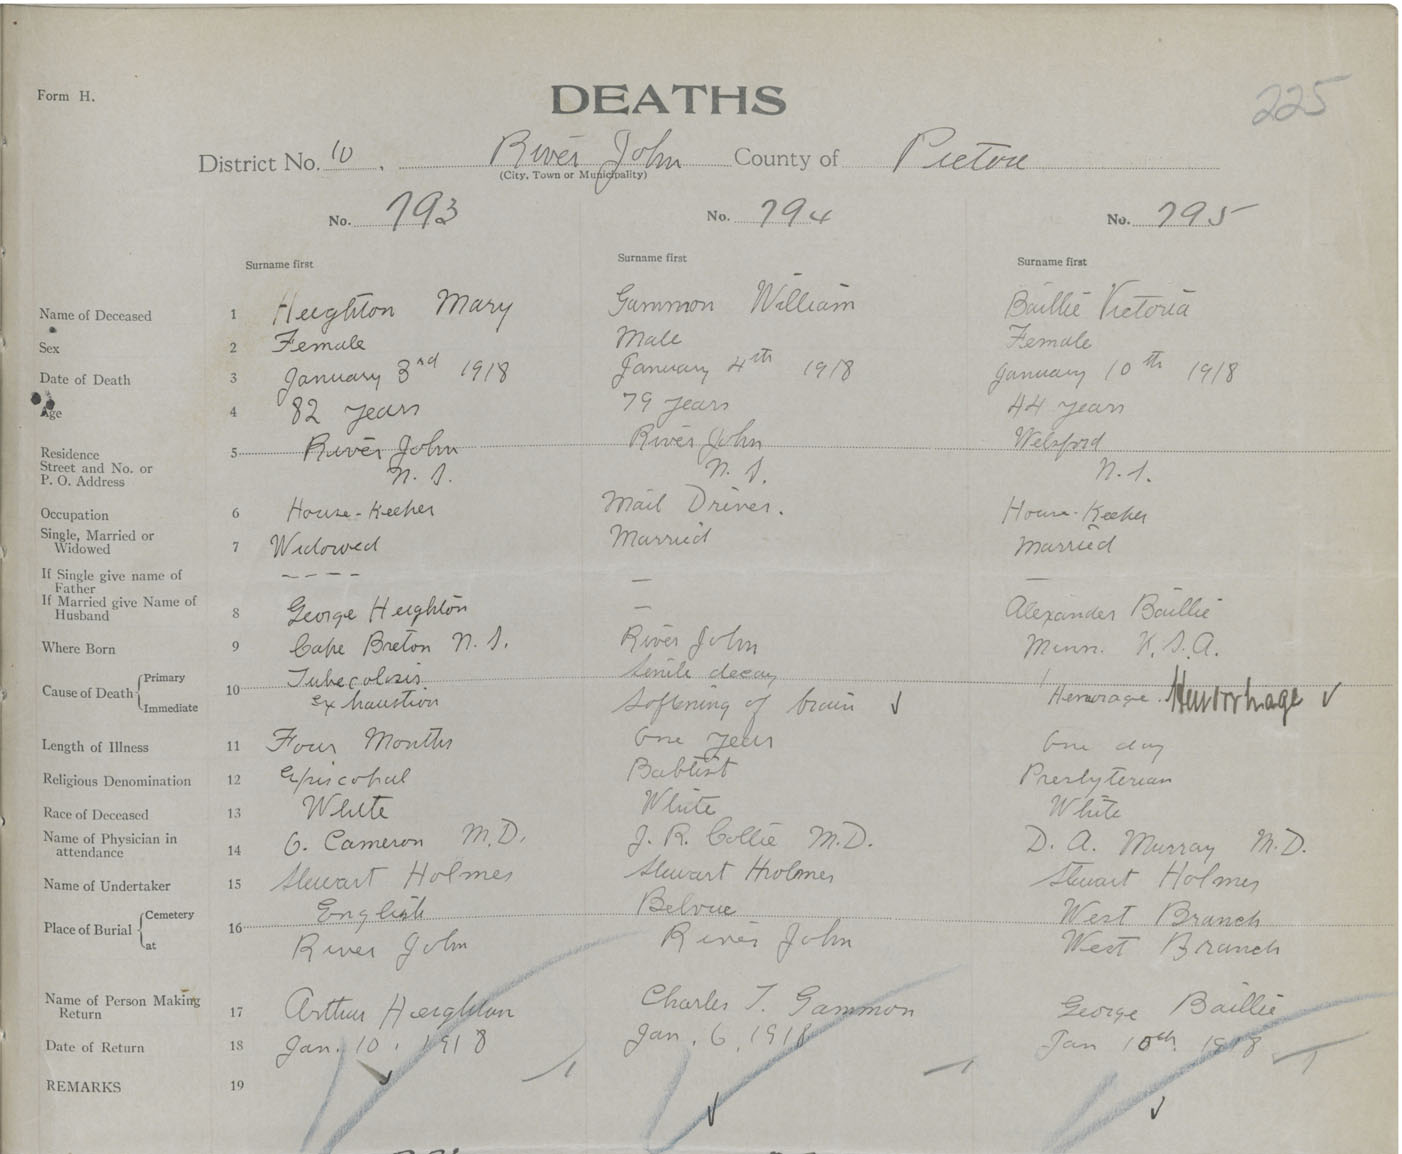 225
Form H.
DEATHS
District No. 10. River John County of Pictou
(City, Town or Municipality)
No. 793 No. 794 No. 795
Surname first Surname first Surname first
Name of Deceased 1 Heighton Mary Gammon William Baillie Victoria
Sex 2 Female Male Female
Date of Death 3 January 3rd 1918 January 4th 1918 January 10th 1918
Age 4 82 years 79 years 44 years
Residence 5 River John River John Welsford
Street and No. or
P. O. Address N. S. N. S. N. S.
Occupation 6 House-Keeper Mail Driver. House-Keeper
Single, Married or
Widowed 7 Widowed Married Married
If Single give name of
Father ---- — —
If Married give Name of
Husband 8 George Heighton — Alexander Baillie
Where Born 9 Cape Breton N. S. River John Minn. U.S.A.
Cause of Death Primary 10 Tubecolosis Senile decay
Immediate exhaustion Softening of brain ✓ Hemorage. Hemorrhage ✓
Length of Illness 11 Four Months One year One day
Religious Denomination 12 Episcopal Babtist Presbyterian
Race of Deceased 13 White White White
Name of Physician in
attendance 14 G. Cameron M.D. J. R. Collie M.D. D. A. Murray M.D.
Name of Undertaker 15 Stewart Holmes Stewart Holmes Stewart Holmes
Place of Burial Cemetery 16 English Belvue West Branch
at River John River John West Branch
Name of Person Making
Return 17 Arthur Heighton Charles T. Gammon George Baillie
Date of Return 18 Jan. 10. 1918 Jan. 6, 1918 Jan 10th 1918
REMARKS 19